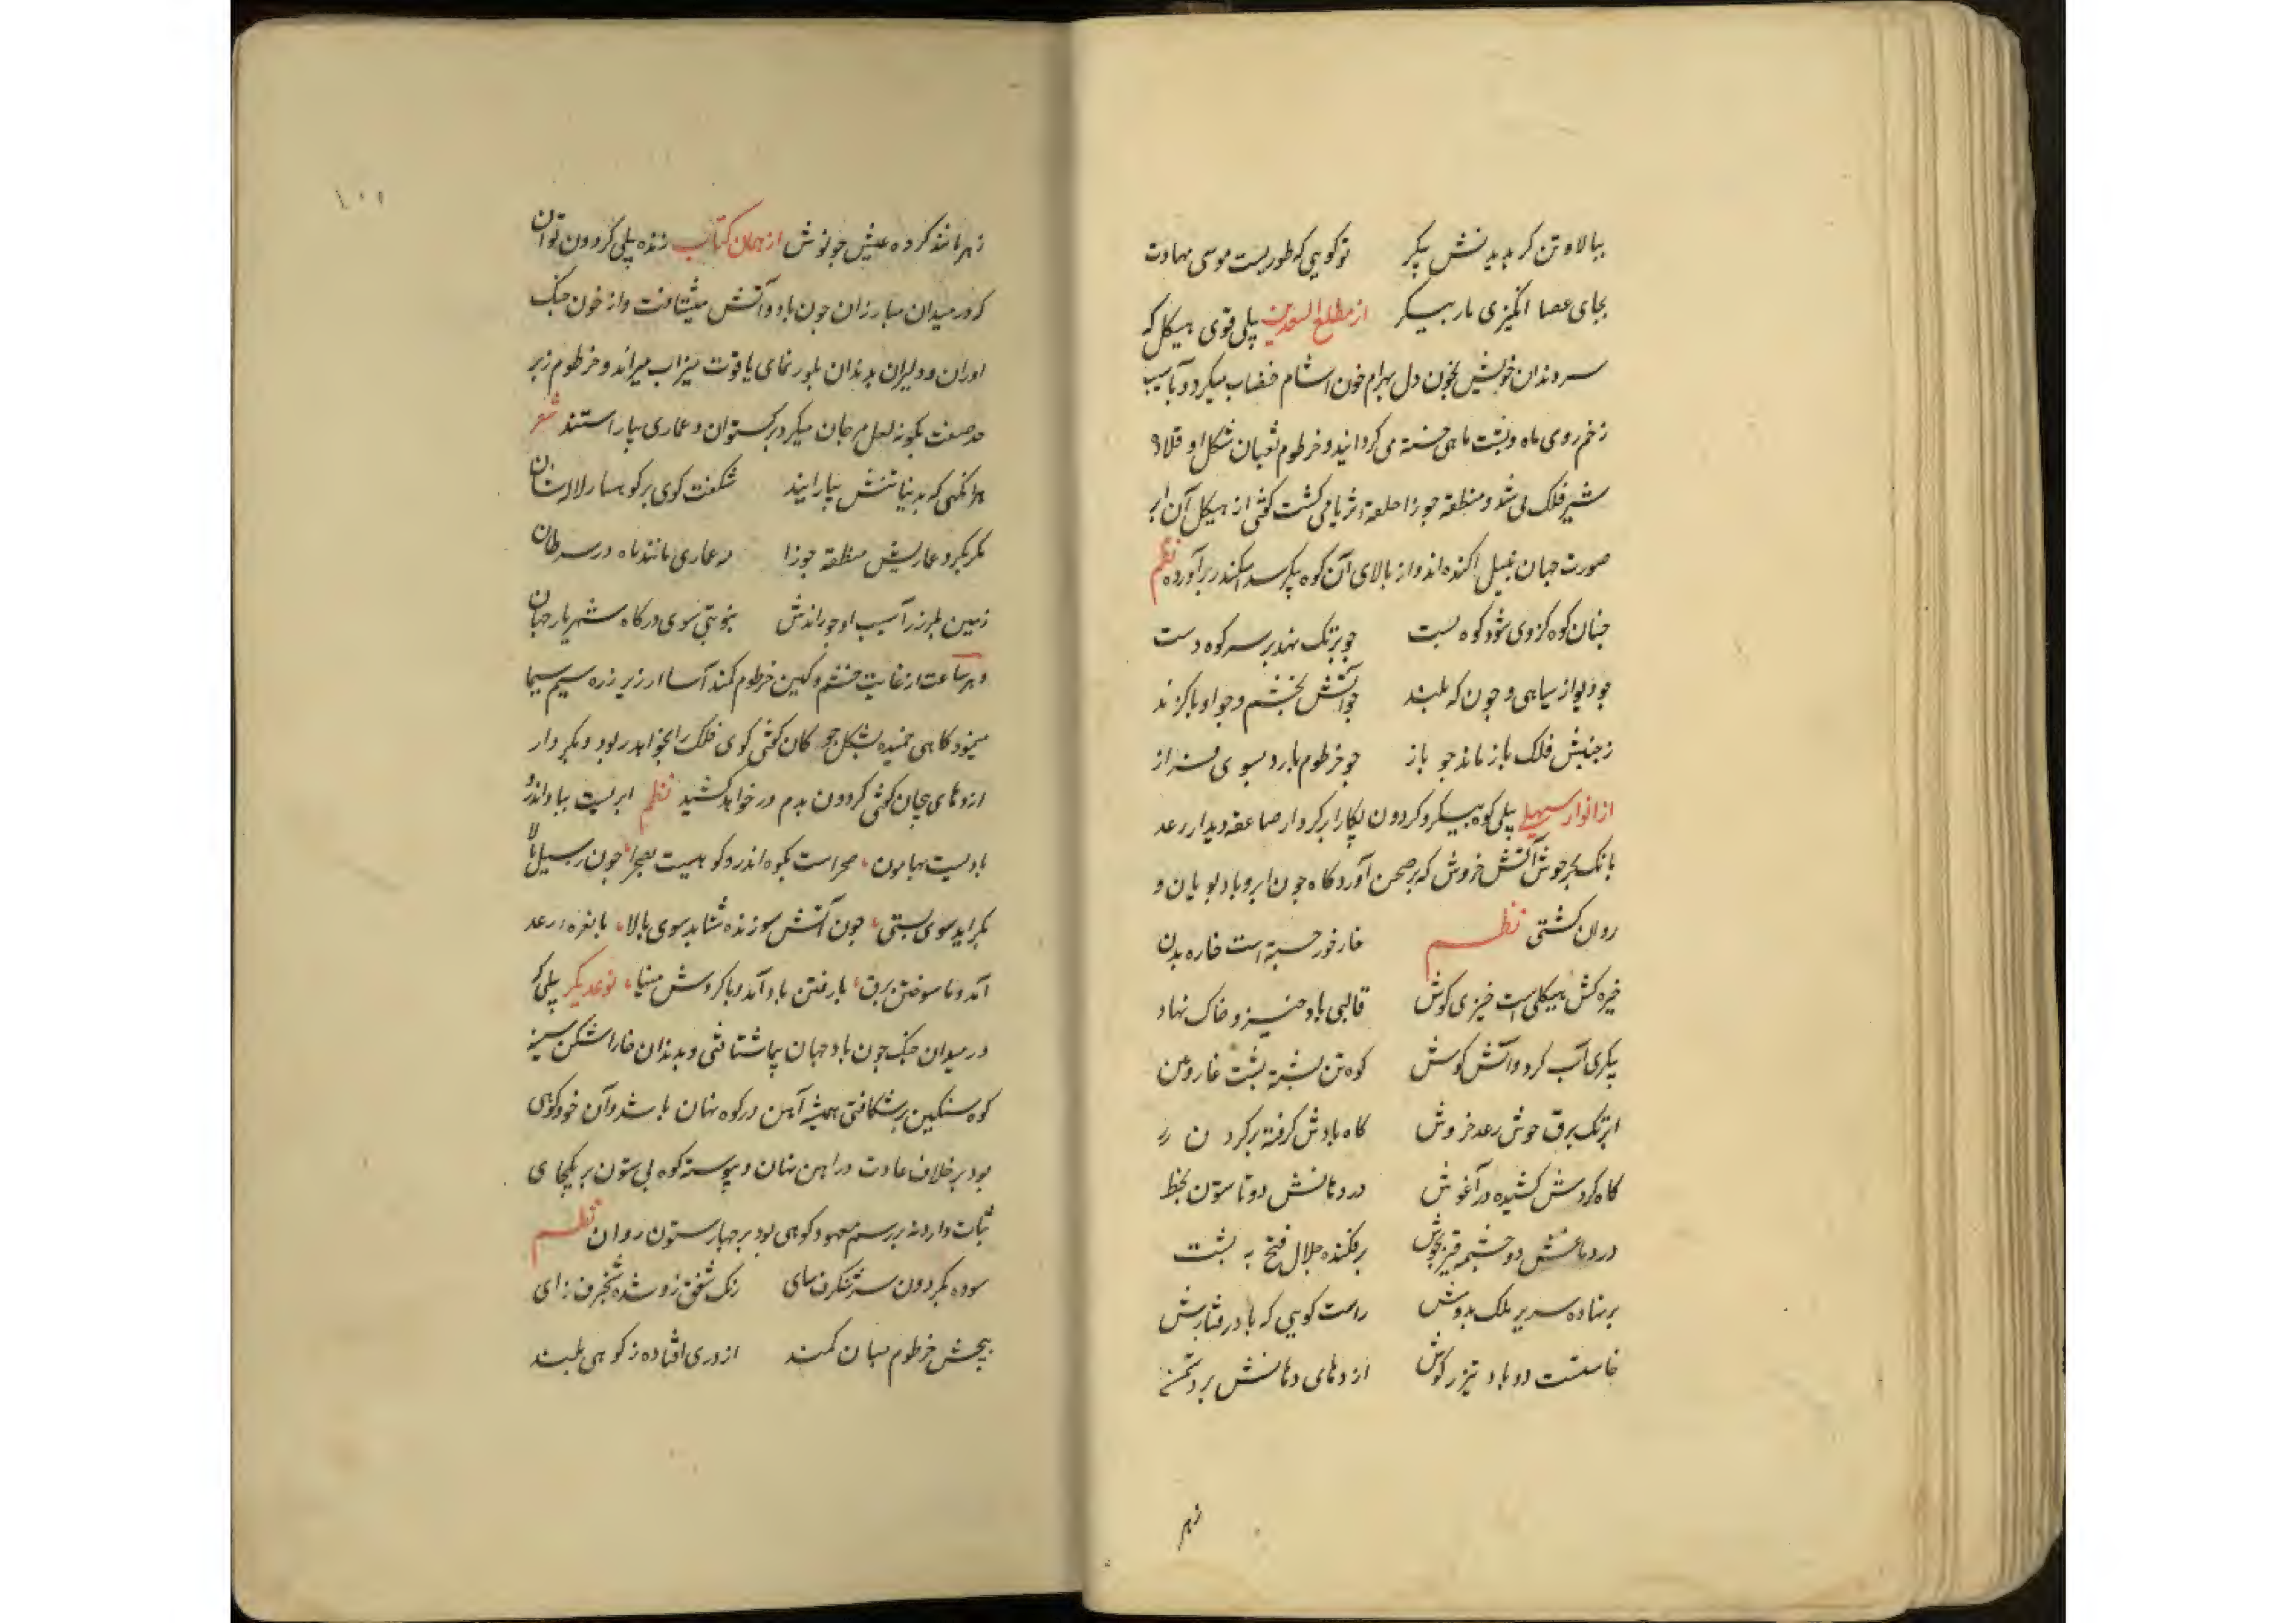 ببالا و تن کر بدیدنش پیکر تو کویی که طوریست موسی مهاوت
بجای عصا انکیزی مار بیسکر از مطلع السعدین پیلی قوی هیکل که
سر دندان خویش بخون دل بهرام خون اشام خضاب میکرد و بآسیب
زخم روی ماه و پشت ماهی خسته می کردانید و خرطوم ثعبان شکل او قلاده
شیر فلک می شد و منطقه جوزا حلقه ثریا می کشت کوئی از هیکل آن ابر
صورت جهان بنیل اکنده اند و از بالای آن کوه پیکر سد سکندر برآورده نظم
جنان کوه کزوی شود کوه پست جو برتک نهد بر سر کوه دست
جو دیو از سیاهی و جون که بلند جو آتش بخشم و جو او با کزند
ز جنبش فلک باز ماند جو باز جو خرطوم یازد بسوی فراز
از انوار سهیلی پیلی کوه پیکر و کردون لکار ابر کردار صاعقه دیدار رعد
بانک بحر جوش آتش خروش که بر صحن آورد کاه جون ابر و باد پویان و
روان کشتی نظم خار خور جسته است خاره بدن
خیره کش هیکلی است خیزی کوش قالبی باد خیز و خاک نهاد
پیکری آب کرد و آتش کوش کوه تن پشته پشت غار دهن
ابر تک برق جوش رعد خروش کاه بادش کرفته بر کردن
کاه کردش کشیده در آغوش در دهانش دو تا ستون بخط
در دماغش دو جشمه قیر بجوش بر فکنده جلال فتح به پشت
بر نهاده سریر ملک بدوش راست کویی که باد رفتارش
خاستست دو باد تیز ز کوش اژدهای دمانش بر دشمن
زهر
۱۰۱
زهر مانند کرده عیش جو نوش از همان کتاب زنده پیلی کردون توان
که در میدان مبارزان جون باد و آتش میشتافت و از خون جنک
اوران و دلیران بدندان بلور نمای یاقوت میزاب میراند و خرطوم زبر
جد صفت بکونه لعل مرجان میکرد بر کستوان و عماری بیاراستند شعر
هرانکهی که بدیبا تنش بیارایند شکفت کوی بر کوهسار لاله ستان
مکر بکرد عماریش منطقه جوزا مه عماری مانند ماه در سرطان
زمین بلرزد ز آسیب او جو راندش بنوبتی سوی درکاه شهریار جهان
و هر ساعت از غایت خشم و کین خرطوم کمند آسا از زیر زره سیم سیما
مینمود کاهی خمیده بشکل جو کان کوئی کوی فلک را بخواهد ربود و بکردار
اژدهای پیجان کوئی کردون بدم در خواهد کشید نظم ابریست بباد اندر و
بادیست بهامون، صحراست بکوه اندر و کوهیست بصحرا، جون سیل ز بالا
بکراید سوی پستی، جون آتش سوزنده شتابد سوی بالا، با نعره رعد
آمد و با سوختن برق، با رفتن باد آمد و با کردش مینا، نوعدیکر پیلی که
در میدان جنک جون باد جهان پیما شتافتی و بدندان خارا شکن سینه
کوه سنکین بر شکافتی همیشه آهن در کوه نهان باشد و آن خود کوهی
بود بر خلاف عادت در اهن نهان و پیوسته کوه بی ستون بر یکجای
ثبات دارد نه بر رسم معهود کوهی بود بر جهار ستون روان نظم
سوده بکردون سر شنکرف سای رنک شفق زو شده شنجرف زای
پیجش خرطوم میان کمند اژدری افتاده ز کوهی بلند